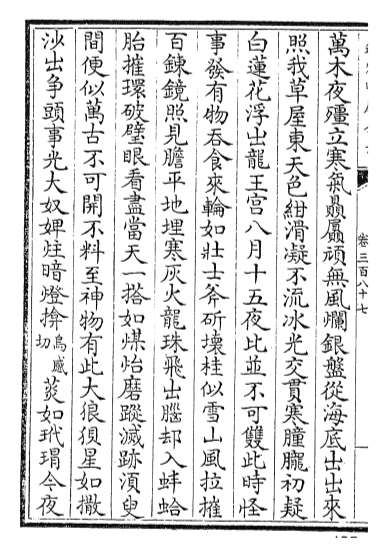 卷三百八十七
萬木夜殭立寒氣贔屭頑無風爛銀盤從海底出出來
照我草屋東天色紺滑凝不流冰光交貫寒朣朧初疑
白蓮花浮出龍王宮八月十五夜比並不可雙此時怪
事發有物吞食來輪如壯士斧斫壞桂似雪山風拉摧
百鍊鏡照見膽平地埋寒灰火龍珠飛出腦却入蚌蛤
胎摧環破璧眼看盡當天一搭如煤炲磨蹤滅跡湏臾
間便似萬古不可開不料至神物有此大狼狽星如撒
沙出争頭事光大奴婢炷暗燈揜烏感切菼如玳瑁今夜